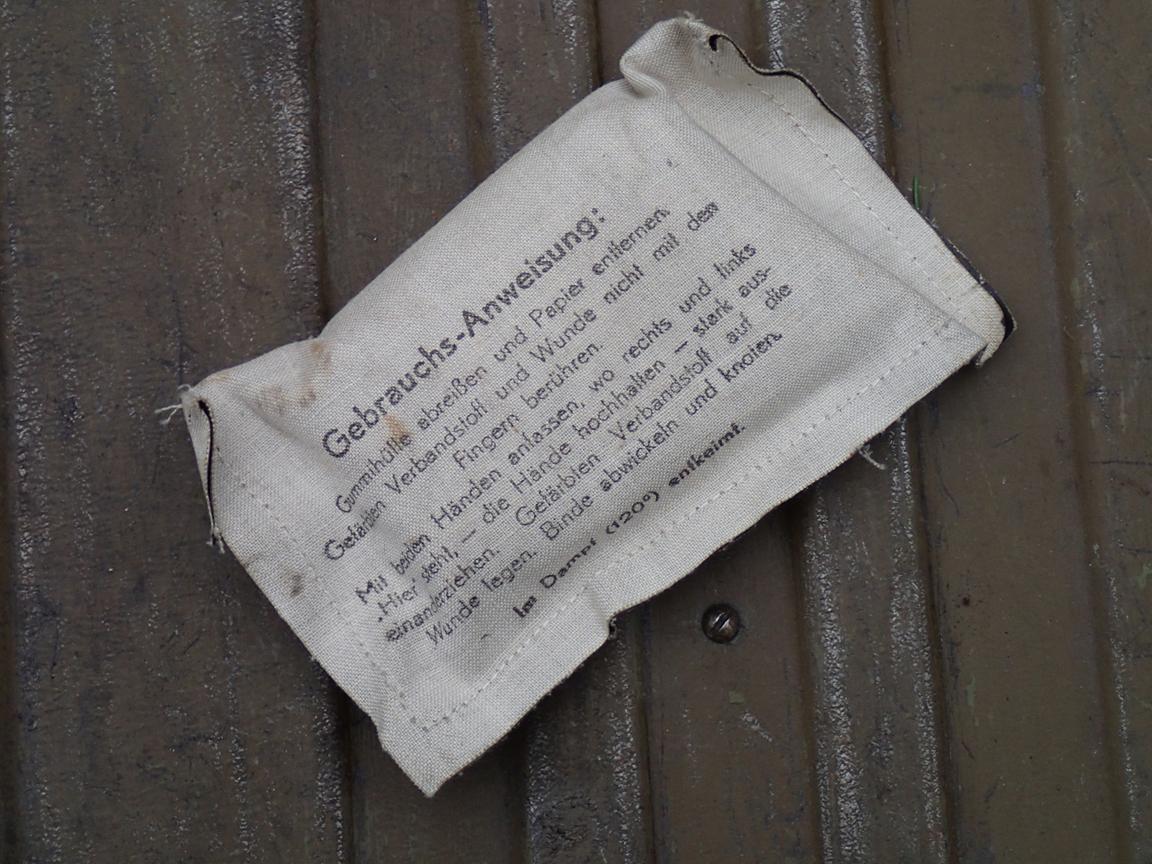 Gebrauchs-Anweisung:
Gummihülle abreißen und Papier entfernen.
Gefärbten Verbandstoff und Wunde nicht mit den
Fingern berühren.
Mit beiden Händen anfassen, wo rechts und links
„Hier“ steht, — die Hände hochhalten — stark aus-
einanderziehen. Gefärbten Verbandstoff auf die
Wunde legen. Binde abwickeln und knoten.
Im Dampf (120°) entkeimt.